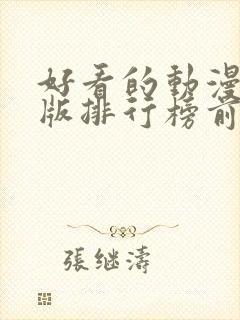 好看的動漫
版排行榜前
張继濤